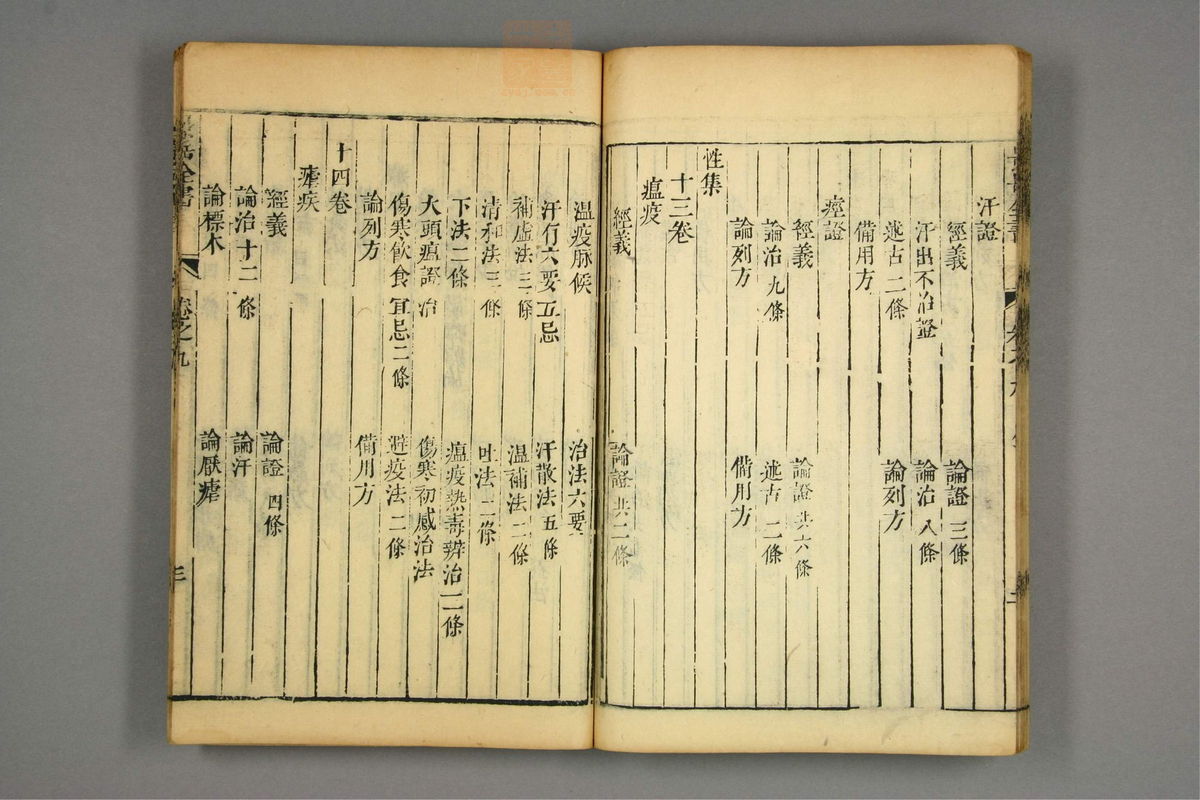 汗證
經義 論證 三條
汗出不治證 論治 八條
述古 二條 論列方
備用方
痙證
經義 論證 共六條
論治 九條 述古 二條
論列方 備用方
性集
十三卷
瘟疫
經義 論證 共二條
温疫脉候 治法六要
汗有六要五忌 汗散法 五條
補虛法 三條 温補法 二條
清和法 三條 吐法 二條
下法 二條 瘟疫熱毒辨治 二條
大頭瘟證治 傷寒初感治法
傷寒飲食宜忌 二條 避疫法 二條
論列方 備用方
十四卷
瘧疾
經義 論證 四條
論治 十二條 論汗
論標本 論厭瘧
全書 卷之九 三